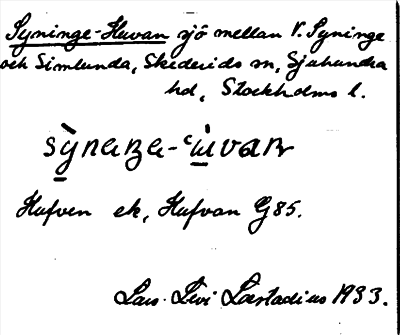 Syninge-Huvan sjö mellan V. Syninge
och Simlunda, Skederids sn, Sjuhundra
hd, Stockholms l.
Hufven ek, Hufvan G85.
Lars Levi Læstadius 1933.